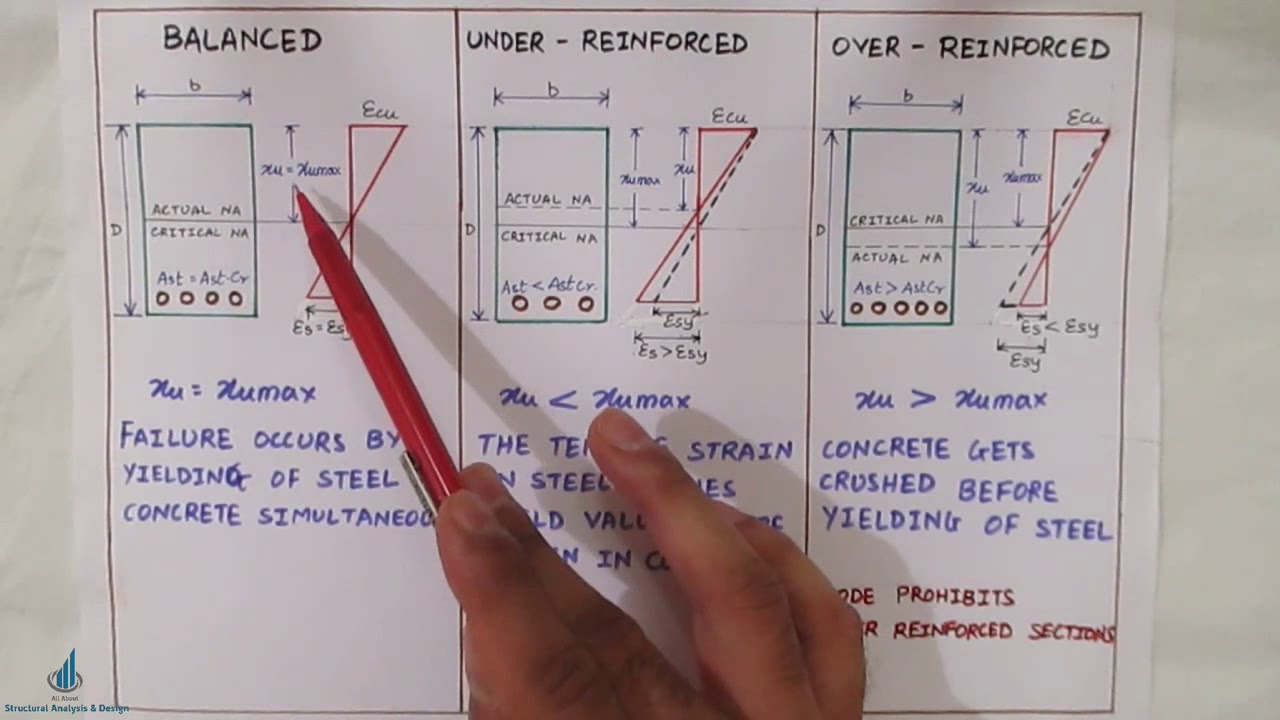 BALANCED
b
Ecu
xu = xumax
D
ACTUAL NA
CRITICAL NA
Ast = Ast.Cr
Es = Esy
xu = xumax
FAILURE OCCURS BY
YIELDING OF STEEL
CONCRETE
UNDER - REINFORCED
b
Ecu
xu
xumax
D
ACTUAL NA
CRITICAL NA
Ast < Ast Cr.
Esy
Es > Esy
xu < xumax
THE STRAIN
STEEL
IN
OVER - REINFORCED
b
Ecu
xumax
xu
D
CRITICAL NA
ACTUAL NA
Ast > Ast Cr
Es < Esy
Esy
xu > xumax
CONCRETE GETS
CRUSHED BEFORE
YIELDING OF STEEL
PROHIBITS
REINFORCED SECTIONS
All About
Structural Analysis & Design